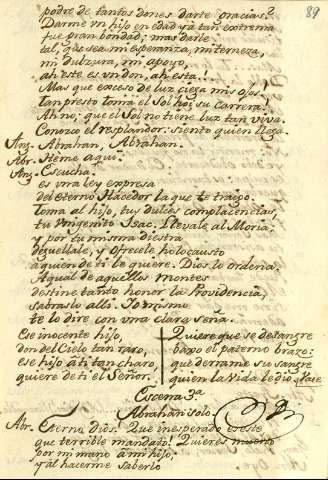 89
podre de tantos dones darte gracias?
Darme vn hijo en edad ya tan extrema
fue gran bondad; mas darle
tal, que sea mi esperanza, mi terneza,
mi dulzura, mi apoyo,
ah este es vn don, ah esta!
Mas que exceso de luz ciega mis ojos!
Tan presto toma el Sol hoi su carrera!
Ah no; que el Sol no tiene luz tan viva.
Conozco el resplandor: siento quien llega.
Ang. Abrahan, Abrahan.
Abr. Heme aqui.
Ang. Escucha.
es vna ley expresa
del eterno Hacedor la que te traigo.
Toma al hijo, tus dulces complacencias,
tu Vnigenito Isac. Llevale al Moria.
y por tu misma diestra
deguellale, y ofrecele holocausto
a quien de ti la quiere. Dios lo ordena.
A qual de aquellos montes
destine tanto honor la Providencia,
sabraslo alli. Yo mismo
te lo dire con vna clara seña.
Ese inocente hijo,
don del Cielo tan raro,
ese hijo a ti tan charo,
quiere de ti el Señor.
Quiere que se desangre
baxo el paterno brazo:
que derrame su sangre
quien la vida le dio. Vase
Escena 3ª
Abrahan solo.
Abr. Eterno Dios! Que inesperado es este
que terrible mandato! Quieres muerto
por mi mano a mi hijo;
y al hacerme saberlo